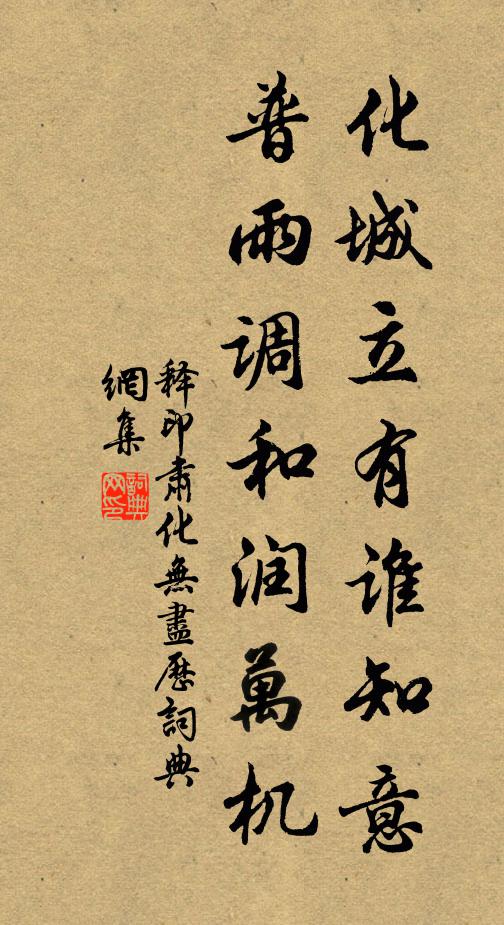 化城立有谁知意
普雨调和润萬机
释印肃化無盡歷詞典
網集
詞典
网印